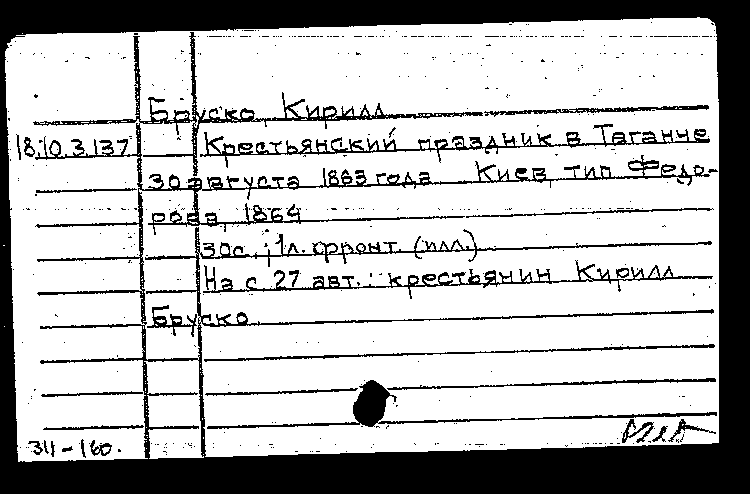 Бруско, Кирилл
18.10.3.137 Крестьянский праздник в Таганче
30 августа 1863 года Киев, тип Федо-
рова, 1864
30с.; 1л. фронт. (илл.)
На с 27 авт.: крестьянин Кирилл
Бруско
311-160.